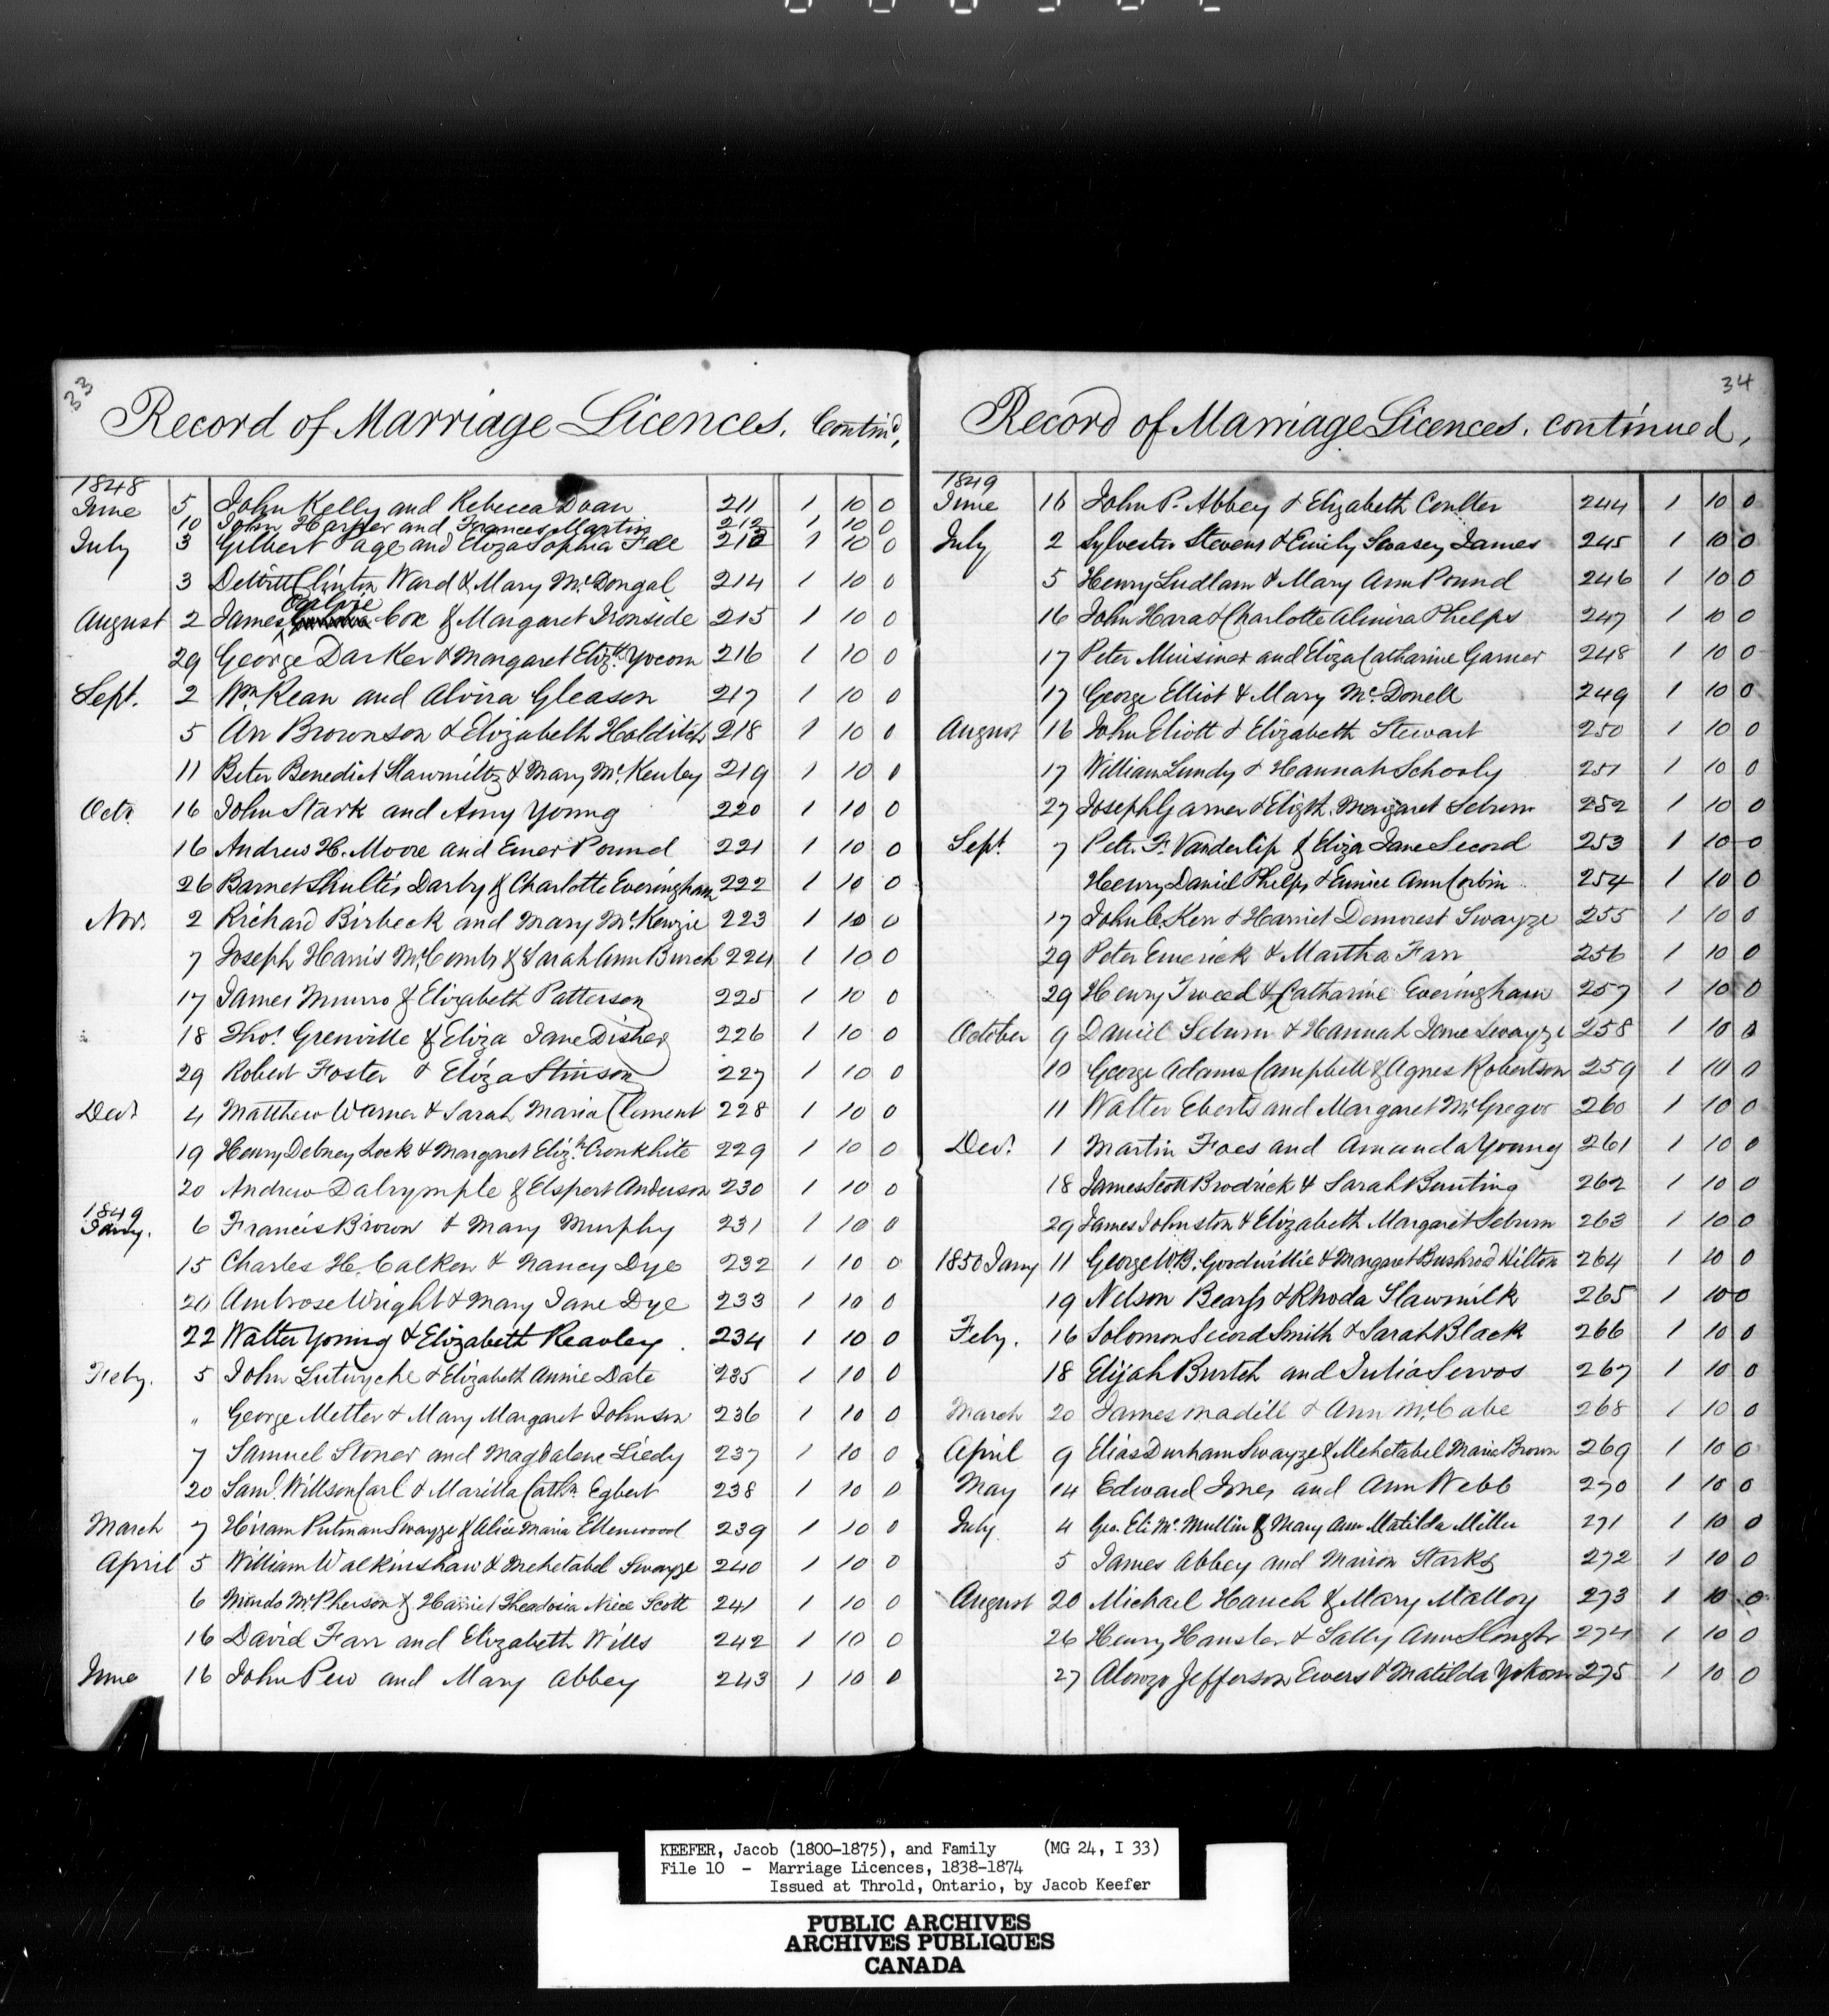 33
Record of Marriage Licences. Contind,
1848
June 5 John Kelly and Rebecca Doan 211 1 10 0
10 John Harper and Frances Martin 212 1 10 0
July 3 Gilbert Page and Eliza Sophia Fell 213 1 10 0
3 Dewitt Clinton Ward & Mary McDongal 214 1 10 0
Ogilvie
August 2 James Cox & Margaret Ironside 215 1 10 0
29 George Darker & Margaret Elizth. Yocom 216 1 10 0
Sept. 2 Wm. Kean and Alvira Gleason 217 1 10 0
5 An Brownson & Elizabeth Holditch 218 1 10 0
11 Peter Benedict Slawmiltz & Mary McKenley 219 1 10 0
Octr. 16 John Stark and Amy Young 220 1 10 0
16 Andrew H. Moore and Emer Pound 221 1 10 0
26 Barnet Shultis Darby & Charlotte Everingham 222 1 10 0
Nov. 2 Richard Birbeck and Mary McKenzie 223 1 10 0
7 Joseph Harris McCombs & Sarah Ann Burch 224 1 10 0
17 James Munro & Elizabeth Patterson 225 1 10 0
18 Thos. Grenville & Eliza Jane Disher 226 1 10 0
29 Robert Foster & Eliza Stinson 227 1 10 0
Decr 4 Matthew Warner & Sarah Maria Clement 228 1 10 0
19 Henry Debney Lock & Margaret Elizh. Cronkhite 229 1 10 0
20 Andrew Dalrymple & Elspert Anderson 230 1 10 0
1849
Jany. 6 Francis Brown & Mary Murphy 231 1 10 0
15 Charles H. Calken & Nancy Dye 232 1 10 0
20 Ambrose Wright & Mary Jane Dye 233 1 10 0
22 Walter Young & Elizabeth Reavley. 234 1 10 0
Feby. 5 John Lutwyche & Elizabeth Annie Date 235 1 10 0
" George Metler & Mary Margaret Johnson 236 1 10 0
7 Samuel Stoner and Magdalene Liedy 237 1 10 0
20 Saml. Willson Carl & Marilla Cathn. Egbert 238 1 10 0
March 7 Hiram Putman Swayze & Alice Maria Ellenwood 239 1 10 0
April 5 William Walkinshaw & Mehetabel Swayze 240 1 10 0
6 Mundo McPherson & Harriet Theadosia Niece Scott 241 1 10 0
16 David Farr and Elizabeth Wills 242 1 10 0
June 16 John Pew and Mary Abbey 243 1 10 0
34
Record of Marriage Licences. continued,
1849
June 16 John P. Abbey & Elizabeth Coulter 244 1 10 0
July 2 Sylvester Stevens & Emily Swasey James 245 1 10 0
5 Henry Ludlam & Mary Ann Pound 246 1 10 0
16 John Hara & Charlotte Almira Phelps 247 1 10 0
17 Peter Muisiner and Eliza Catharine Garner 248 1 10 0
17 George Elliot & Mary McDonell 249 1 10 0
August 16 John Eliott & Elizabeth Stewart 250 1 10 0
17 William Lundy & Hannah Schooly 251 1 10 0
27 Joseph Garner & Elizth. Margaret Seburn 252 1 10 0
Sept. 7 Peter F. Vanderlip & Eliza Jane Secord 253 1 10 0
Henry David Phelps & Eunice Ann Corbin 254 1 10 0
17 John C. Kerr & Harriet Demorest Swayze 255 1 10 0
29 Peter Emerick & Martha Farr 256 1 10 0
29 Henry Tweed & Catharine Everingham 257 1 10 0
October 9 Daniel Seburn & Hannah Jane Swayze 258 1 10 0
10 George Adams Campbell & Agnes Robertson 259 1 10 0
11 Walter Eberts and Margaret McGregor 260 1 10 0
Decr. 1 Martin Foes and Amanda Young 261 1 10 0
18 James Scott Brodrick & Sarah Bunting 262 1 10 0
29 James Johnston & Elizabeth Margaret Seburn 263 1 10 0
1850 Jany 11 George W.B. Goodwillie & Margaret Bushrod Hilton 264 1 10 0
19 Nelson Bearss & Rhoda Slawmilk 265 1 10 0
Feby. 16 Solomon Secord Smith & Sarah Black 266 1 10 0
18 Elijah Burtch and Julia Servos 267 1 10 0
March 20 James Madill & Ann McCabe 268 1 10 0
April 9 Elias Durham Swayze & Mehetabel Maria Brown 269 1 10 0
May 14 Edward Jones and Ann Webb 270 1 10 0
July 4 Geo. Eli McMullin & Mary Ann Matilda Miller 271 1 10 0
5 James Abbey and Marion Starks 272 1 10 0
August 20 Michael Hauch & Mary Malloy 273 1 10 0
26 Henry Hansler & Sally Ann Slought 274 1 10 0
27 Alonzo Jefferson Ewers & Matilda Yokom 275 1 10 0
KEEFER, Jacob (1800-1875), and Family (MG 24, I 33)
File 10 - Marriage Licences, 1838-1874
Issued at Throld, Ontario, by Jacob Keefer
PUBLIC ARCHIVES
ARCHIVES PUBLIQUES
CANADA